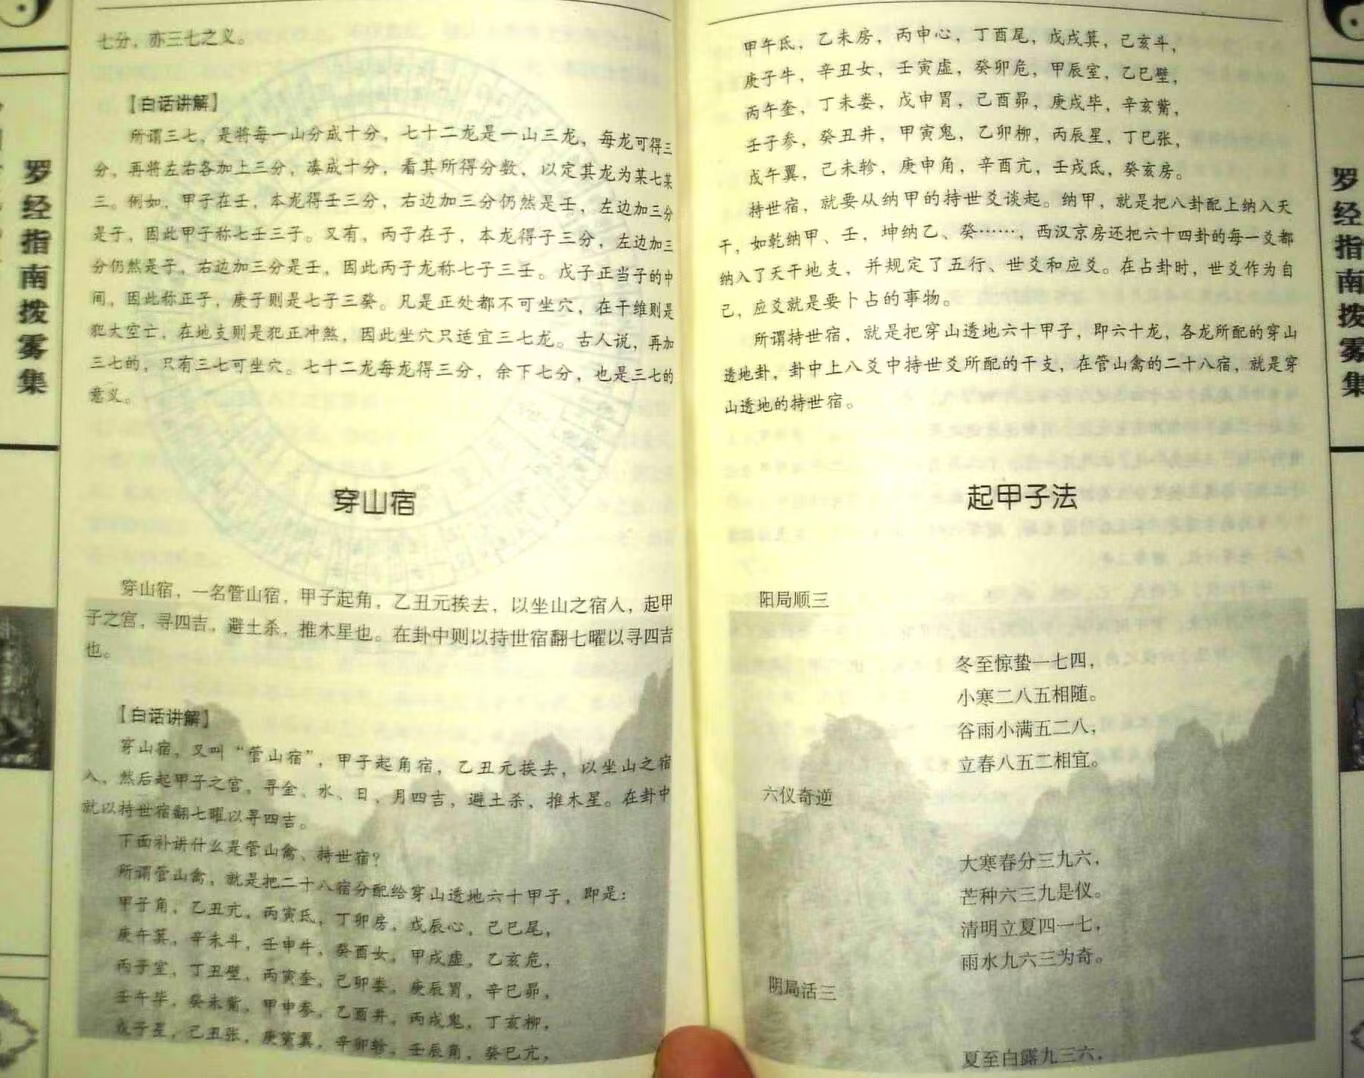 七分，亦三七之义。
【白话讲解】
所谓三七，是将每一山分成十分，七十二龙是一山三龙，每龙可得三
分，再将左右各加上三分，凑成十分，看其所得分数，以定其龙为某七某
三。例如，甲子在壬，本龙得壬三分，右边加三分仍然是壬，左边加三分
是子，因此甲子称七壬三子。又有，丙子在子，本龙得子三分，左边加三
分仍然是子，右边加三分是壬，因此丙子龙称七子三壬。戊子正当子的中
间，因此称正子，庚子则是七子三癸。凡是正处都不可坐穴，在干维则是
犯大空亡，在地支则是犯正冲煞，因此坐穴只适宜三七龙。古人说，再加
三七的，只有三七可坐穴。七十二龙每龙得三分，余下七分，也是三七的
意义。
穿山宿
穿山宿，一名管山宿，甲子起角，乙丑元挨去，以坐山之宿人，起甲
子之宫，寻四吉，避土杀，推木星也。在卦中则以持世宿翻七曜以寻四吉
也。
【白话讲解】
穿山宿，又叫“管山宿”，甲子起角宿，乙丑元挨去，以坐山之宿
入，然后起甲子之宫，寻金、水、日、月四吉，避土杀，推木星。在卦中
就以持世宿翻七曜以寻四吉。
下面补讲什么是管山禽、持世宿？
所谓管山禽，就是把二十八宿分配给穿山透地六十甲子，即是：
甲子角，乙丑亢，丙寅氐，丁卯房，戊辰心，己巳尾，
庚午箕，辛未斗，壬申牛，癸酉女，甲戌虚，乙亥危，
丙子室，丁丑壁，丙寅奎，己卯娄，庚辰胃，辛巳昴，
壬午毕，癸未觜，甲申参，乙酉井，丙戌鬼，丁亥柳，
戊子星，己丑张，庚寅翼，辛卯轸，壬辰角，癸巳亢，
罗经指南拨雾集
甲午氐，乙未房，丙申心，丁酉尾，戊戌箕，己亥斗，
庚子牛，辛丑女，壬寅虚，癸卯危，甲辰室，乙巳壁，
丙午奎，丁未娄，戊申胃，己酉昴，庚戌毕，辛亥觜，
壬子参，癸丑井，甲寅鬼，乙卯柳，丙辰星，丁巳张，
戊午翼，己未轸，庚申角，辛酉亢，壬戌氐，癸亥房。
持世宿，就要从纳甲的持世爻谈起。纳甲，就是把八卦配上纳入天
干，如乾纳甲、壬，坤纳乙、癸……，西汉京房还把六十四卦的每一爻都
纳入了天干地支，并规定了五行、世爻和应爻。在占卦时，世爻作为自
己，应爻就是要卜占的事物。
所谓持世宿，就是把穿山透地六十甲子，即六十龙，各龙所配的穿山
透地卦，卦中上八爻中持世爻所配的干支，在管山禽的二十八宿，就是穿
山透地的持世宿。
起甲子法
阳局顺三
冬至惊蛰一七四，
小寒二八五相随。
谷雨小满五二八，
立春八五二相宜。
六仪奇逆
大寒春分三九六，
芒种六三九是仪。
清明立夏四一七，
雨水九六三为奇。
阴局活三
夏至白露九三六，
罗经指南拨雾集